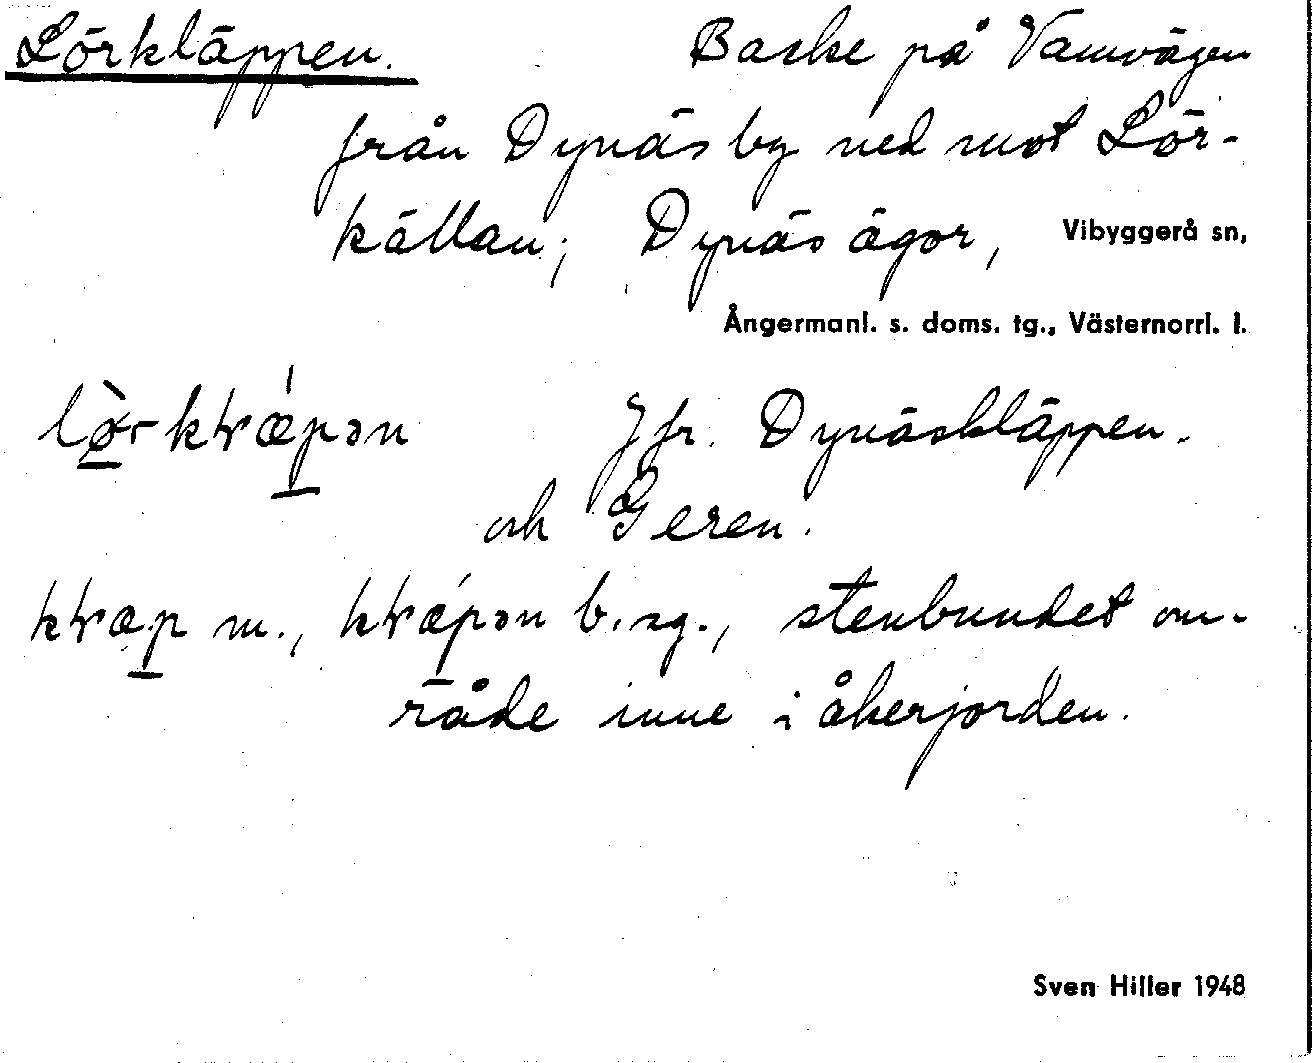 Lörkläppen. Backe på Vamvägen
från Dynäs by ned mot Lör-
källan; Dynäs ägor, Vibyggerå sn,
Ångermanl. s. doms. tg., Västernorrl. l.
Jfr. Dynäskläppen.
och Geren.
m., b. sg., stenbundet om-
råde inne i åkerjorden.
Sven Hiller 1948